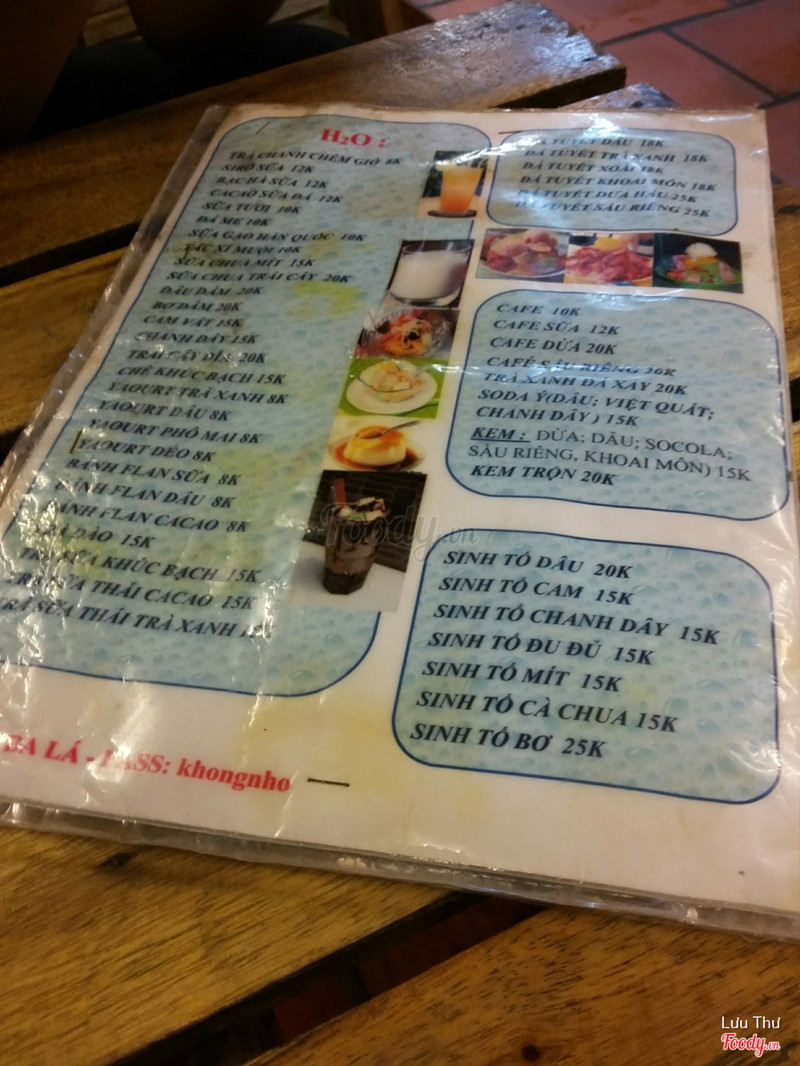 H₂O :
TRÀ CHANH CHÉM GIÓ 8K
SIRÔ SỮA 12K
BẠC HÀ SỮA 12K
CACAO SỮA ĐÁ 12K
SỮA TƯƠI 10K
ĐÁ ME 10K
SỮA GẠO HÀN QUỐC 10K
TẮC XÍ MUỘI 10K
SỮA CHUA MÍT 15K
SỮA CHUA TRÁI CÂY 20K
DÂU DẦM 20K
BƠ DẦM 20K
CAM VẮT 15K
CHANH DÂY 15K
TRÁI CÂY DĨA 20K
CHÈ KHÚC BẠCH 15K
YAOURT TRÀ XANH 8K
YAOURT DÂU 8K
YAOURT PHÔ MAI 8K
YAOURT DẺO 8K
BÁNH FLAN SỮA 8K
BÁNH FLAN DÂU 8K
BÁNH FLAN CACAO 8K
TRÀ ĐÀO 15K
TRÀ SỮA KHÚC BẠCH 15K
TRÀ SỮA THÁI CACAO 15K
TRÀ SỮA THÁI TRÀ XANH
BA LÁ - PASS: khongnho
ĐÁ TUYẾT DÂU 18K
ĐÁ TUYẾT TRÀ XANH 18K
ĐÁ TUYẾT XOÀI 18K
ĐÁ TUYẾT KHOAI MÔN 18K
ĐÁ TUYẾT DƯA HẤU 25K
ĐÁ TUYẾT SẦU RIÊNG 25K
CAFE 10K
CAFE SỮA 12K
CAFE DỪA 20K
CAFÉ SẦU RIÊNG 20K
TRÀ XANH ĐÁ XAY 20K
SODA Ý(DÂU; VIỆT QUẤT;
CHANH DÂY ) 15K
KEM : DỪA; DÂU; SOCOLA;
SẦU RIÊNG, KHOAI MÔN) 15K
KEM TRỘN 20K
SINH TỐ DÂU 20K
SINH TỐ CAM 15K
SINH TỐ CHANH DÂY 15K
SINH TỐ ĐU ĐỦ 15K
SINH TỐ MÍT 15K
SINH TỐ CÀ CHUA 15K
SINH TỐ BƠ 25K
Foody.vn
Lưu Thư
Foody.vn